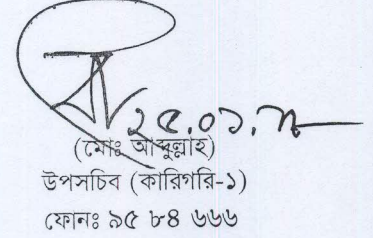 ২৫.০১.
(মোঃ আব্দুল্লাহ)
উপসচিব (কারিগরি-১)
ফোনঃ ৯৫ ৮৪ ৬৬৬